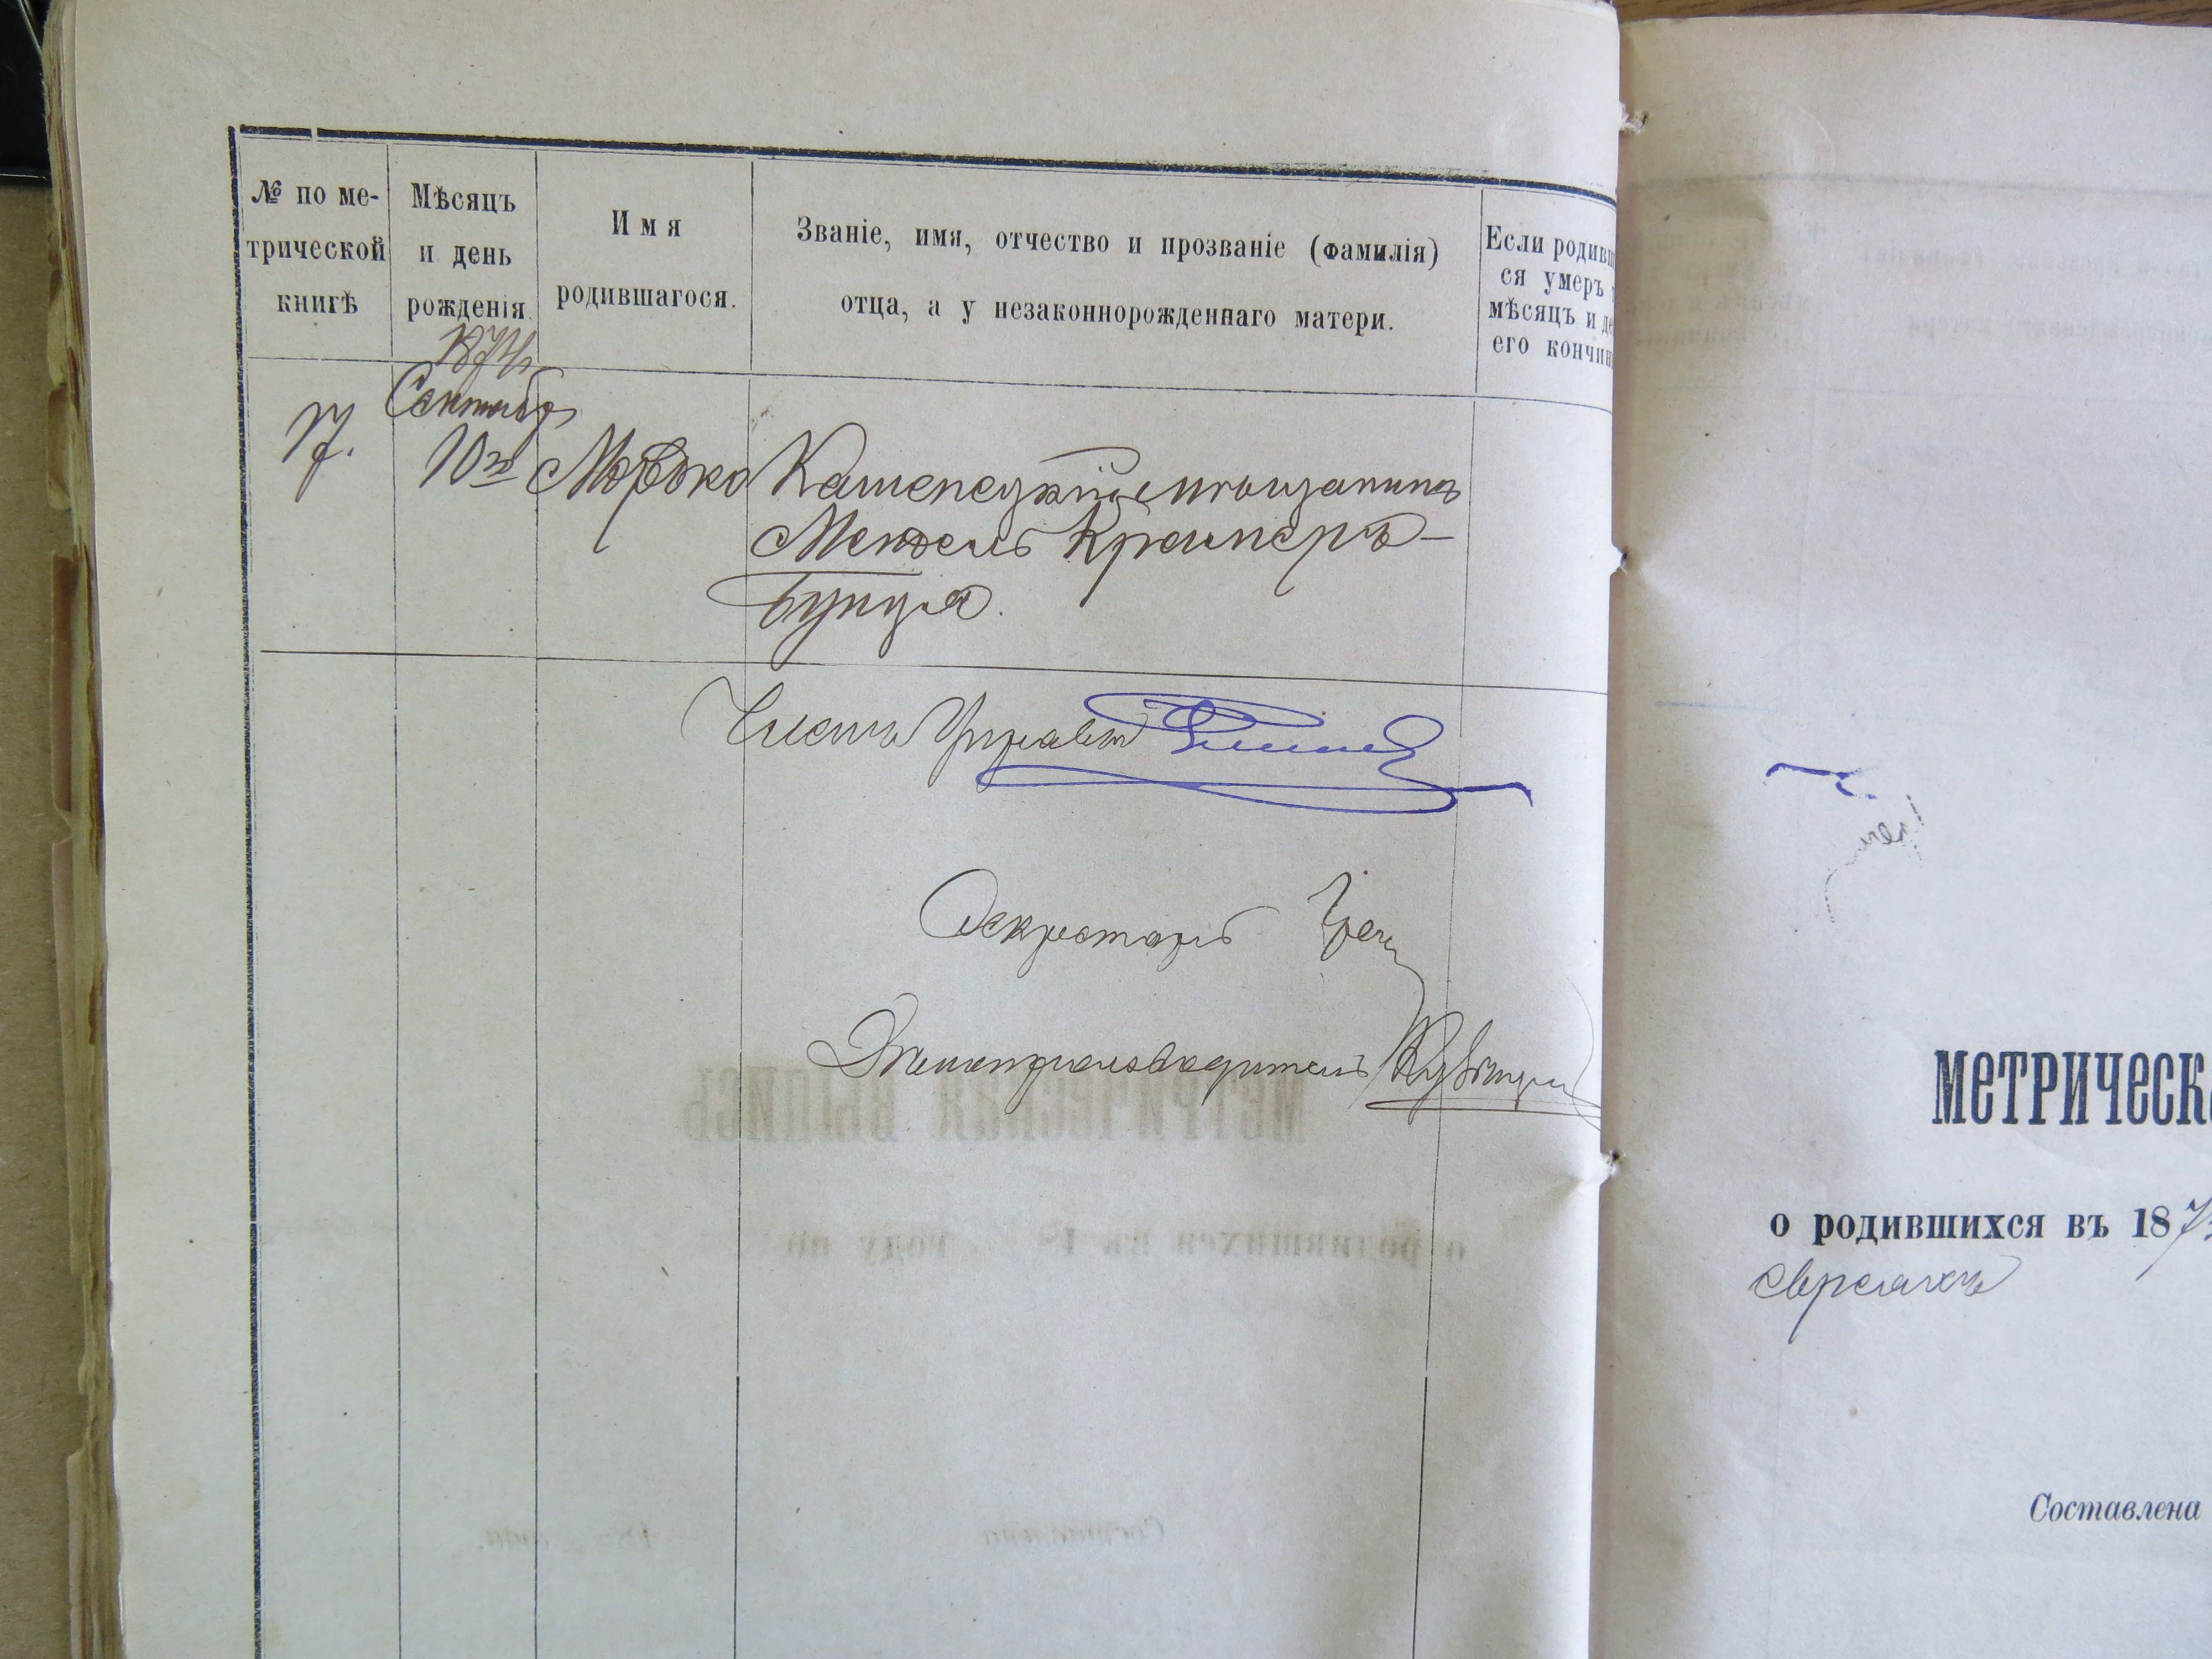 № по ме-
трической
книгѣ
Мѣсяцъ
и день
рожденія.
Имя
родившагося.
Званіе, имя, отчество и прозваніе (фамилія)
отца, а у незаконнорожденнаго матери.
Если родивш
ся умеръ
мѣсяцъ и де
его кончин
1874
Сентябр
17.
10го
Мордко
Каменецкій мѣщанинъ
Мендель Краимеръ-
Бунзя.
Членъ Управы
Секретарь
Дѣлопроизводитель
МЕТРИЧЕСК
о родившихся въ 187
евреяхъ
Составлена